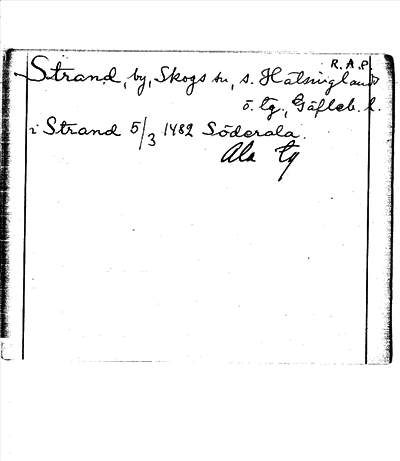 R.A.P.
Strand, by, Skogs sn, s. Hälsinglands
ö. tg, Gäfleb. l.
i Strand 5/3 1482 Söderala.
Ala tg